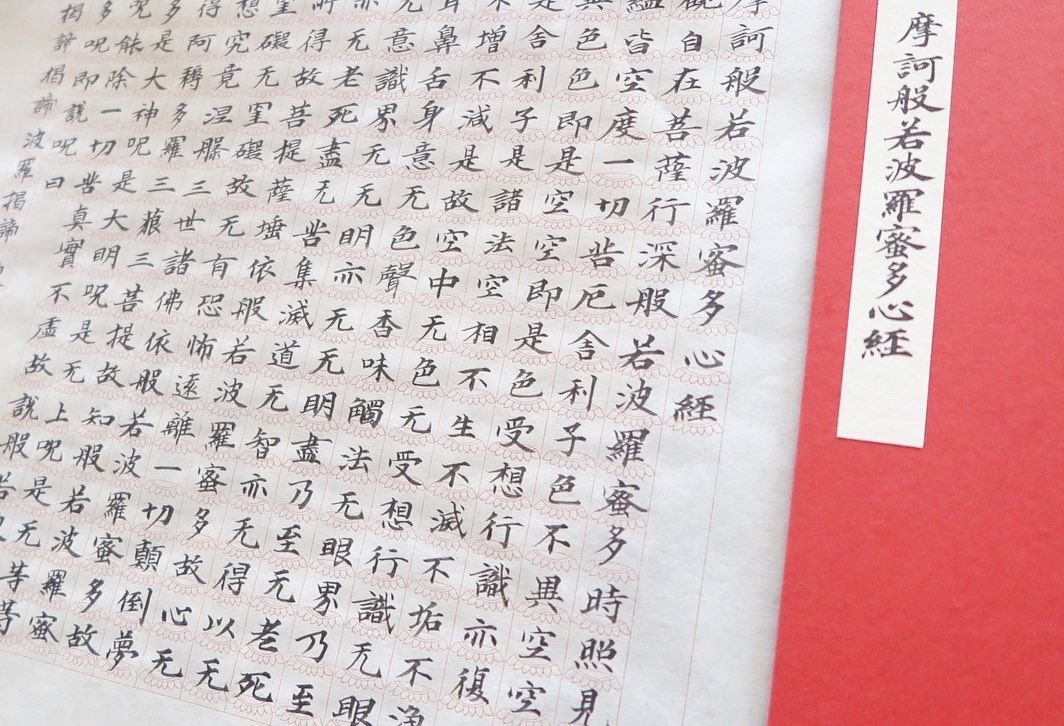 摩訶般若波羅蜜多心経
摩訶般若波羅蜜多心経
觀自在菩薩行深般若波羅蜜多時照見
蘊皆空度一切苦厄舍利子色不異空空
異色色即是空空即是色受想行識亦復
是舍利子是諸法空相不生不滅不垢不淨
不增不減是故空中无色无受想行識无眼
耳鼻舌身意无色聲香味觸法无眼界乃至
无意識界无无明亦无无明盡乃至老死
亦无老死盡无苦集滅道无智亦无得以无
所得故菩提薩埵依般若波羅蜜多故心无
罣礙无罣礙故无有恐怖遠離一切顛倒夢
想究竟涅槃三世諸佛依般若波羅蜜多故
得阿耨多羅三藐三菩提故知般若波羅蜜
多是大神呪是大明呪是无上呪是无等等
呪能除一切苦真實不虛故說般若
多呪即說呪曰
揭諦揭諦波羅揭諦